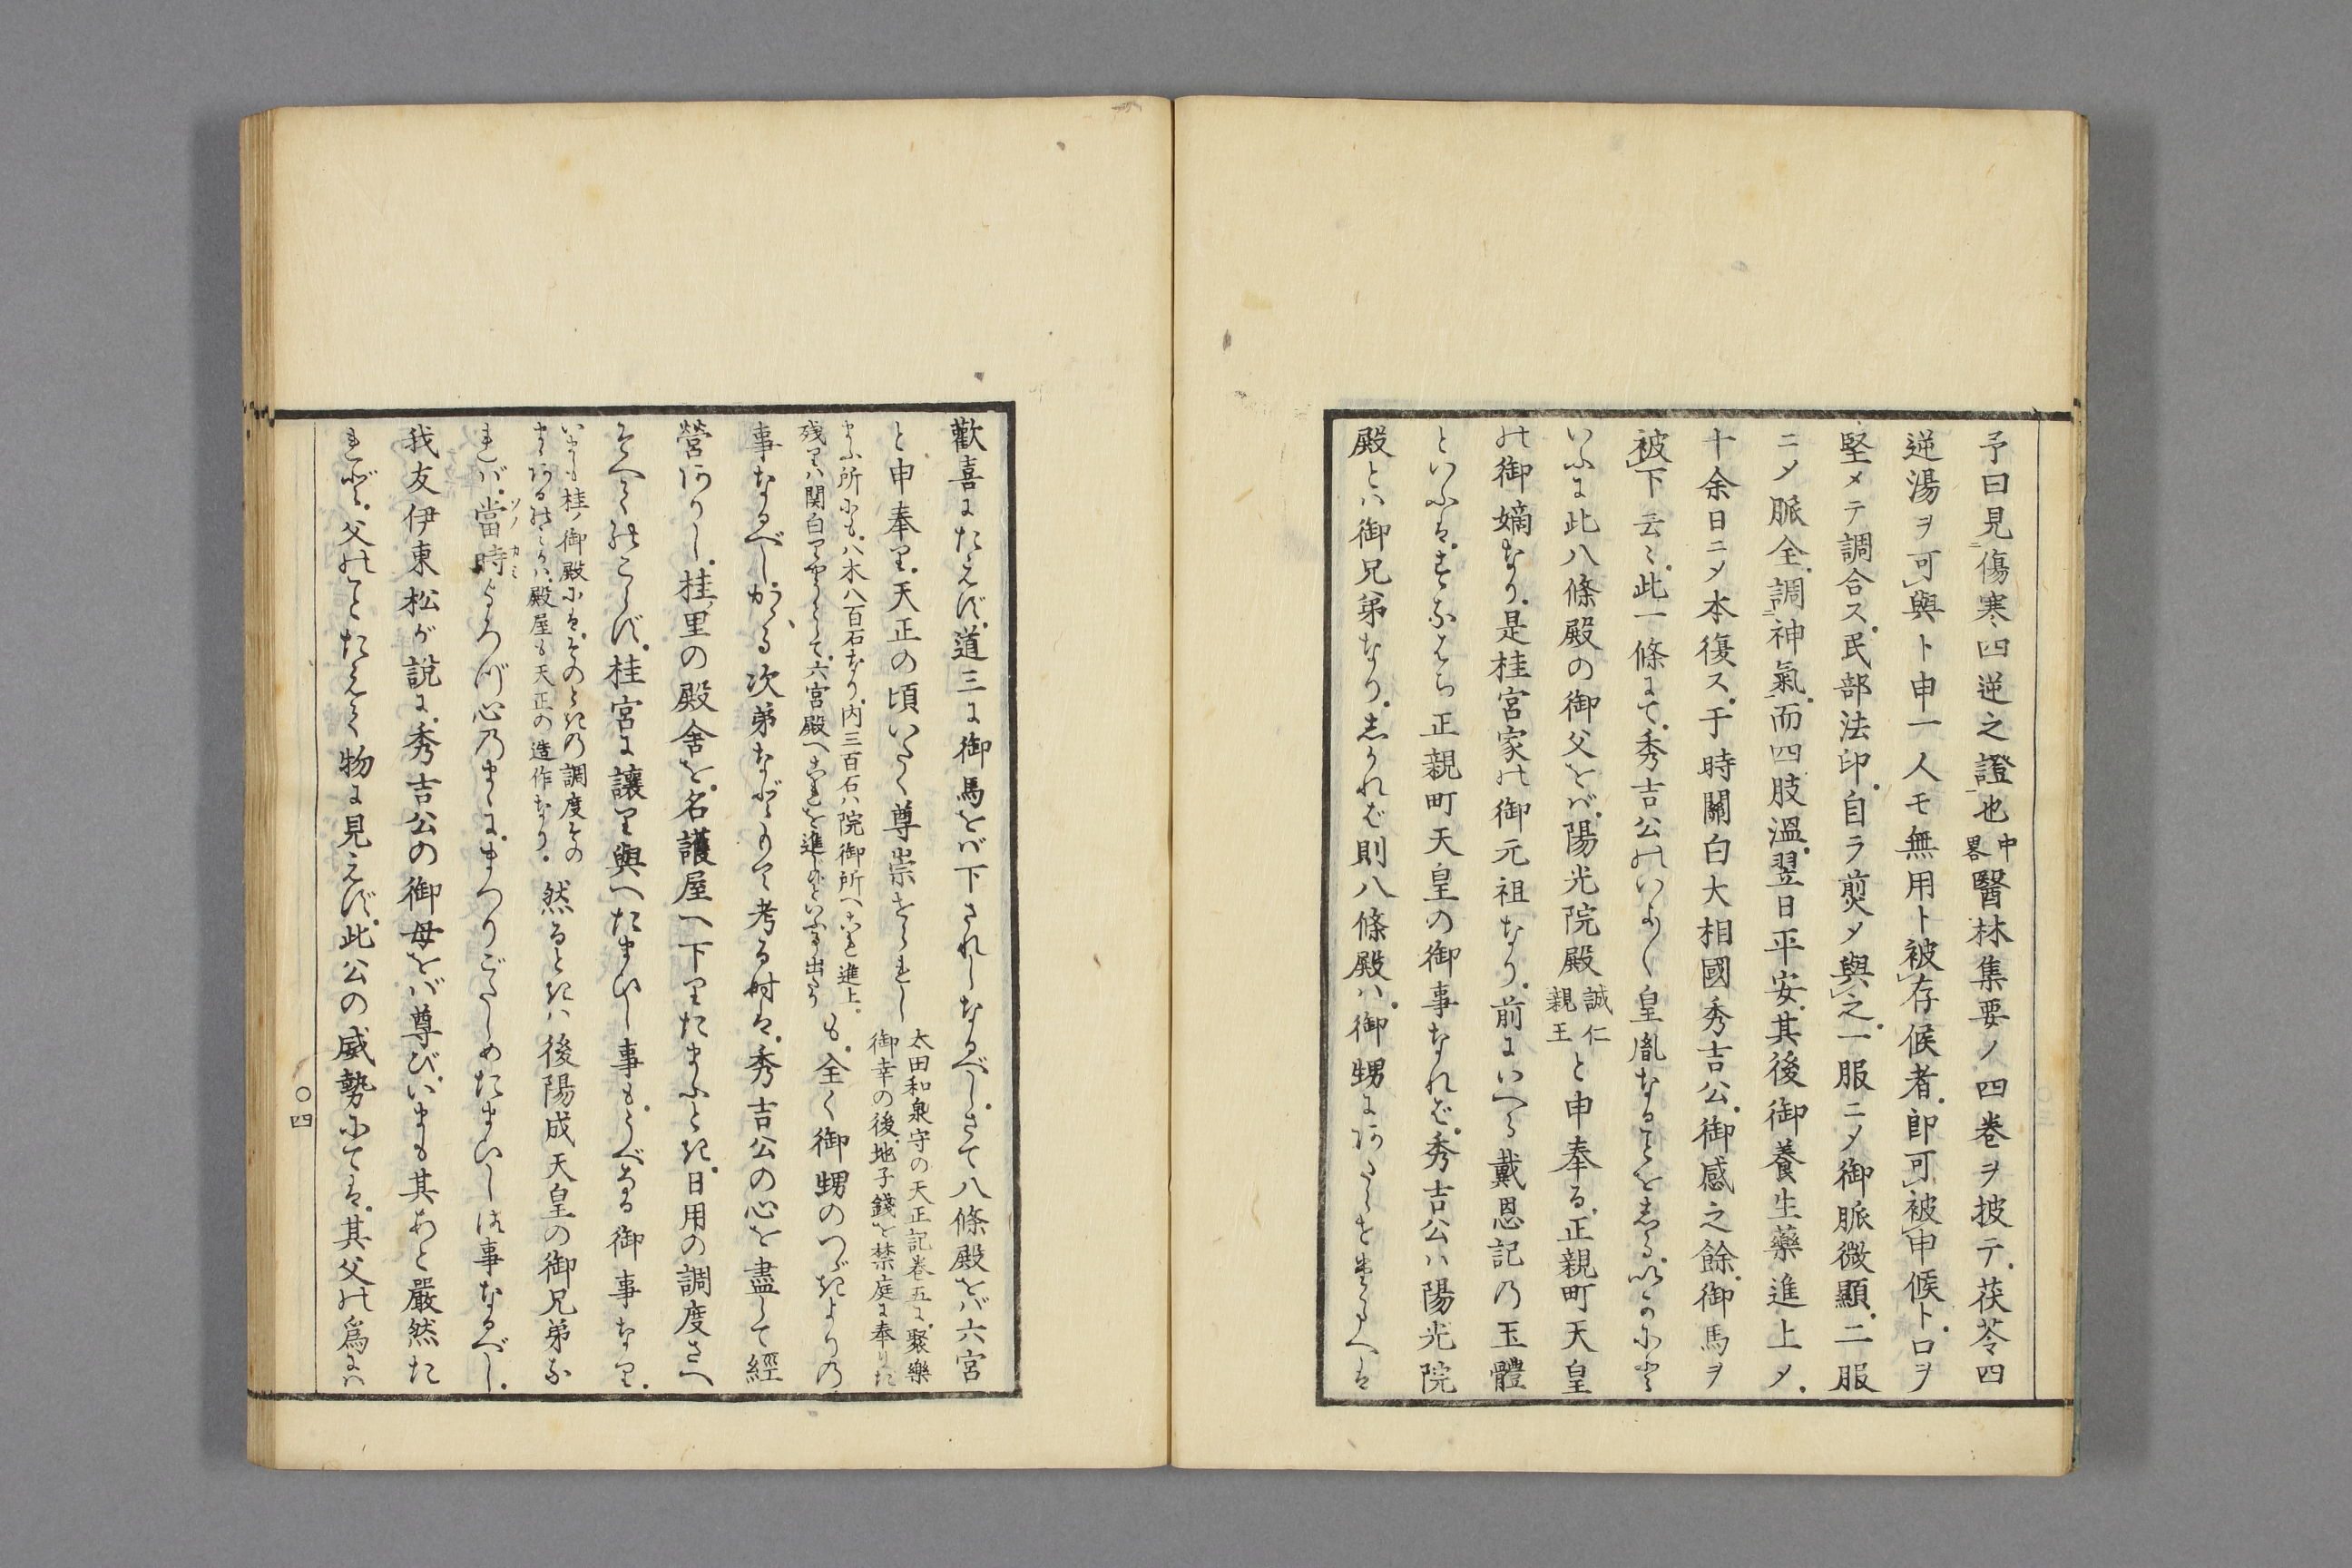 予曰見傷寒四逆之證也中畧醫林集要ノ四巻ヲ披テ茯苓四
逆湯ヲ可與ト申一人モ無用ト被存候者即可被申候ト口ヲ
堅メテ調合ス民部法印自ラ煎メ與之一服ニメ御脈微顯二服
ニメ脈全調神氣而四肢溫翌日平安其後御養生藥進上メ
十余日ニメ本復ス于時關白大相國秀吉公御感之餘御馬ヲ
被下云々此一條にて秀吉公のいよ〳〵皇胤なることを志る
いふに此八條殿の御父をバ陽光院殿誠仁親王と申奉る正親町天皇
の御嫡なり是桂宮家の御元祖なり前にいへる戴恩記乃玉體
といふはすなはち正親町天皇の御事なれば秀吉公ハ陽光院
殿とハ御兄弟なりされば則八條殿ハ御甥に
歡喜にたえず道三に御馬をバ下されしなるべしさて八條殿をバ六宮
と申奉り天正の頃いたく尊崇せられし太田和泉守の天正記巻五に聚樂
御幸の後地子錢を禁庭に奉りた
まふ所にも八木八百石なり内三百石ハ院御所へこれを進上
残りハ関白りやうとして六宮殿へこれを進じ
も全く御甥のつゞきよりの
事なるべしかゝる次第なども考る時は秀吉公の心を盡して經
營ありし桂ノ里の殿舍を名護屋へ下りたまふとき日用の調度さへ
そへてのこらず桂宮に讓り與へたまひし事もうべなる御事なり
いまも桂ノ御殿にはそのときの調度その
殿屋も天正の造作なり
然るときハ後陽成天皇の御兄弟な
れバ當時ソノカミよろづ心乃まゝにまつりごたしめたまひしは事なるべし
我友伊東松が說に秀吉公の御母をバ尊びいまも其あと嚴然た
れど父のことたえて物に見えず此公の威勢にては其父の爲にハ
〇四